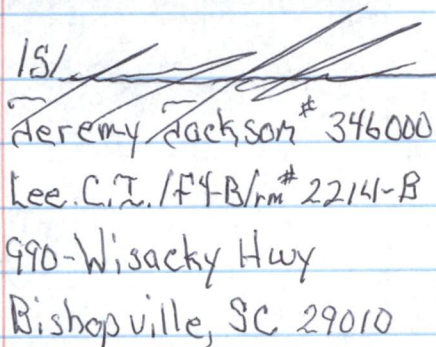 /S/
Jeremy Jackson # 346000
Lee. C.I. /F4-B/rm# 2214-B
990-Wisacky Hwy
Bishopville, SC 29010